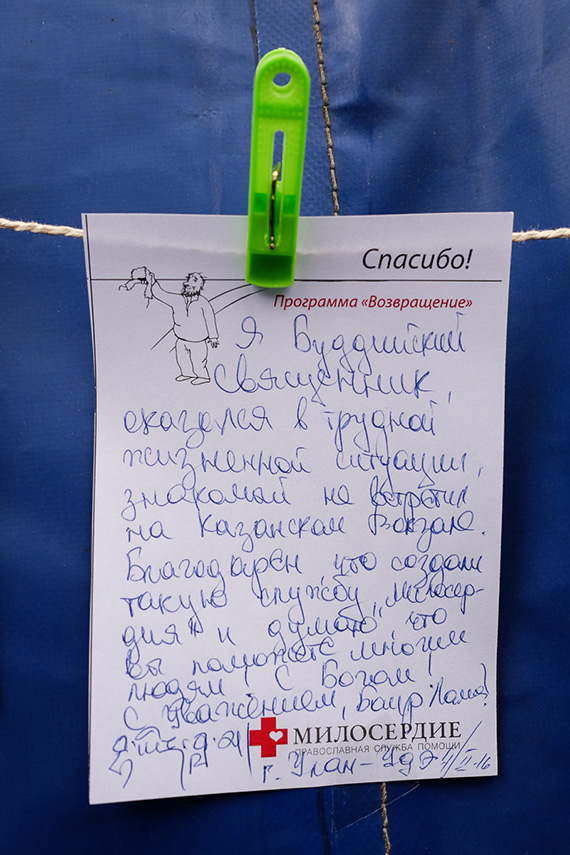 Спасибо!
Программа «Возвращение»
Я Буддийский
священник,
оказался в трудной
жизненной ситуации,
знакомый не встретил
на Казанском Вокзале.
Благодарен что создали
такую службу „Милосер-
дия" и думаю, что
вы поможете многим
людям. С Богом!
С уважением, Баир Лама
МИЛОСЕРДИЕ
ПРАВОСЛАВНАЯ СЛУЖБА ПОМОЩИ
г. Улан-Удэ